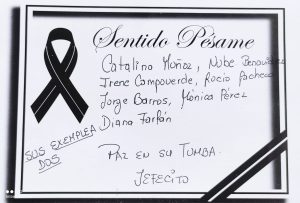 Sentido Pésame
Catalina Muñoz, Nube Benavides
Irene Campoverde, Rocio Pacheco
Jorge Barros, Mónica Pérez
Diana Farfán
SUS EXEMPLEA
DOS
PAZ EN SU TUMBA.
JEFECITO